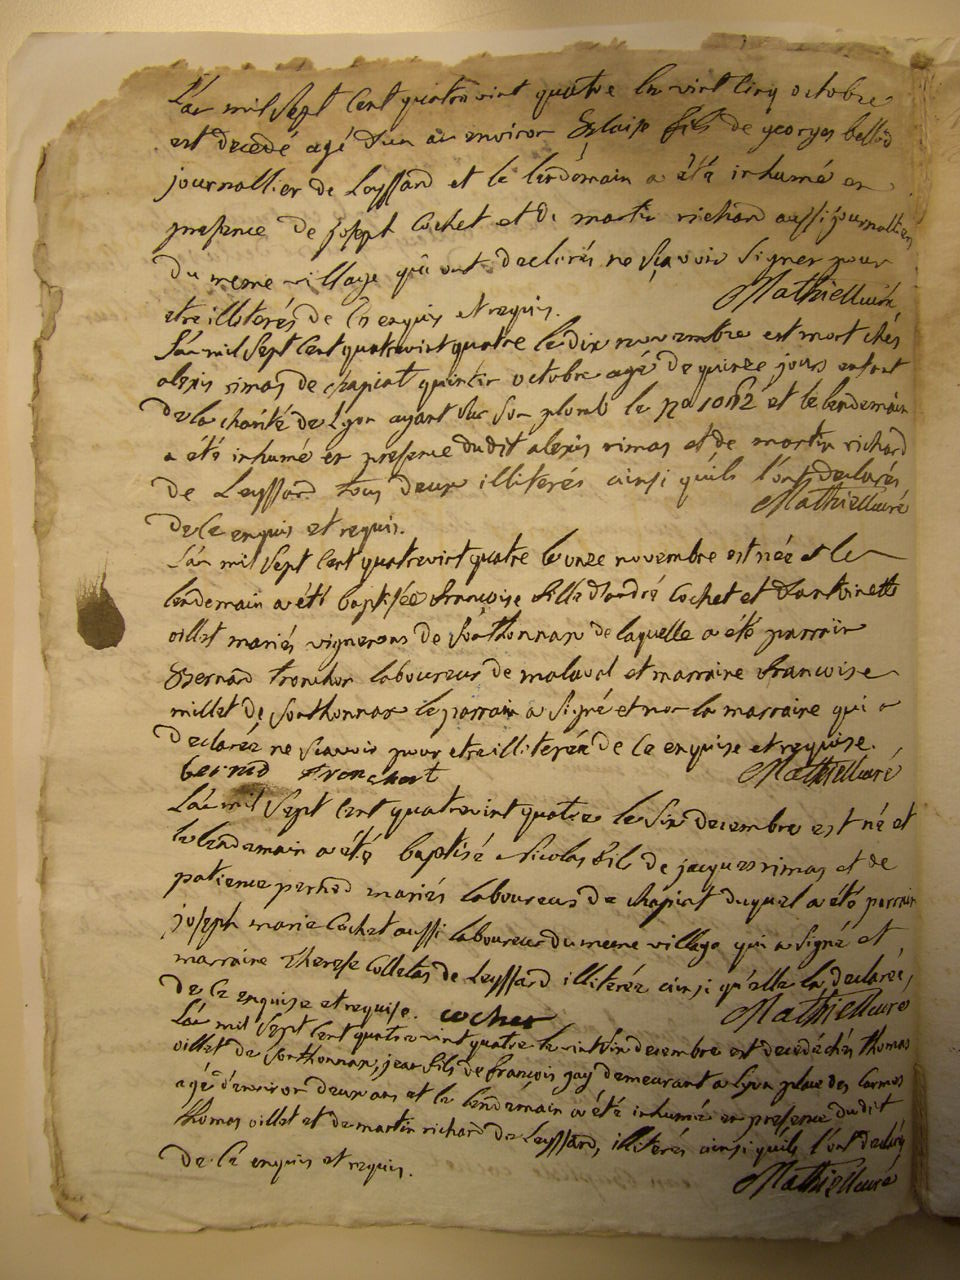 L'an mil sept cent quatrevint quatre le vint cinq octobre
est decedé agé d'un an environ Blaise fils de georges ballod
journallier de Leyssard et le lendemain a été inhumé en
presence de joseph Cochet et de martin richard aussi journalliers
du meme village qui ont declarés ne sçavoir signer pour
etre illiterés de ce enquis et requis. Mathieu curé
L'an mil sept cent quatrevint quatre le dix novembre est mort chés
alexis rimas de chapiat quintin octobre agé de quinze jours enfant
de la charité de Lyon ayant sur son plomb le no 1082 et le lendemain
a été inhumé en presence dudit alexis rimas et de martin richard
de Leyssard tous deux illiterés ainsi quils l'ont declarés
de ce enquis et requis. Mathieu curé
L'an mil sept cent quatrevint quatre le onze novembre est née et le
lendemain a été baptisée françoise fille d'andré Cochet et d'antoinette
oillet mariés vignerons de Sonthonnax de laquelle a été parrain
Bernard tronchon laboureur de malaval et marraine francoise
millet de Sonthonnax le parrain a signé et non la marraine qui a
declarée ne sçavoir pour etre illiterée de ce enquise et requise.
bernad tronchont Mathieu curé
L'an mil sept cent quatrevint quatre le six decembre est né et
le lendemain a été baptisé Nicolas fils de jacques rimas et de
patience perhod mariés laboureurs de chapiat duquel a été parrain
joseph marie Cochet aussi laboureur du meme village qui a signé et
marraine therese Colletas de Leyssard illiterée ainsi qu'elle la declarée,
de ce enquise et requise. cochet Mathieu curé
L'an mil sept cent quatrevint quatre le vint six decembre est decedé chés thomas
oillet de Sonthonnax, jean fils de françois gay demeurant a Lyon place des Carmes
agé d'environ deux ans et le lendemain a été inhumé en presence dudit
thomas oillet et de martin richard de Leyssard, illiterés ainsi quils l'ont declarés
de ce enquis et requis. Mathieu curé